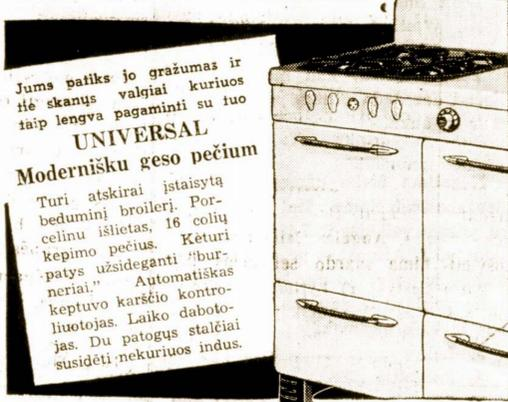 Jums patiks jo gražumas ir
tie skanųs valgiai kuriuos
taip lengva pagaminti su tuo
UNIVERSAL
Modernišku geso pečium
Turi atskirai įstaisytą
beduminį broilerį. Por-
celinu išlietas, 16 colių
kepimo pečius. Keturi
patys užsideganti "bur-
neriai." Automatiškas
keptuvo karščio kontro-
liuotojas. Laiko daboto-
jas. Du patogųs stalčiai
susidėti nekuriuos indus.